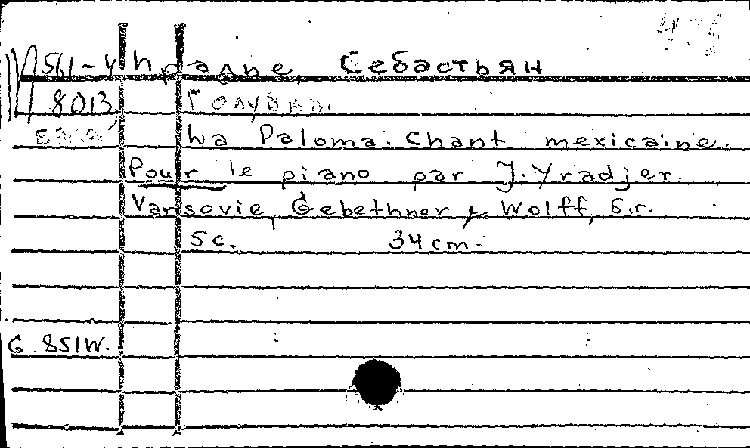 М 561-4 Ирадне, Себастьян
8013 Голубка.
La Paloma. Chant mexicaine.
Pour le piano par J. Yradjer.
Varsovie, Gebethner & Wolff, s.r.
5 c. 34 cm.
G. 851 W.